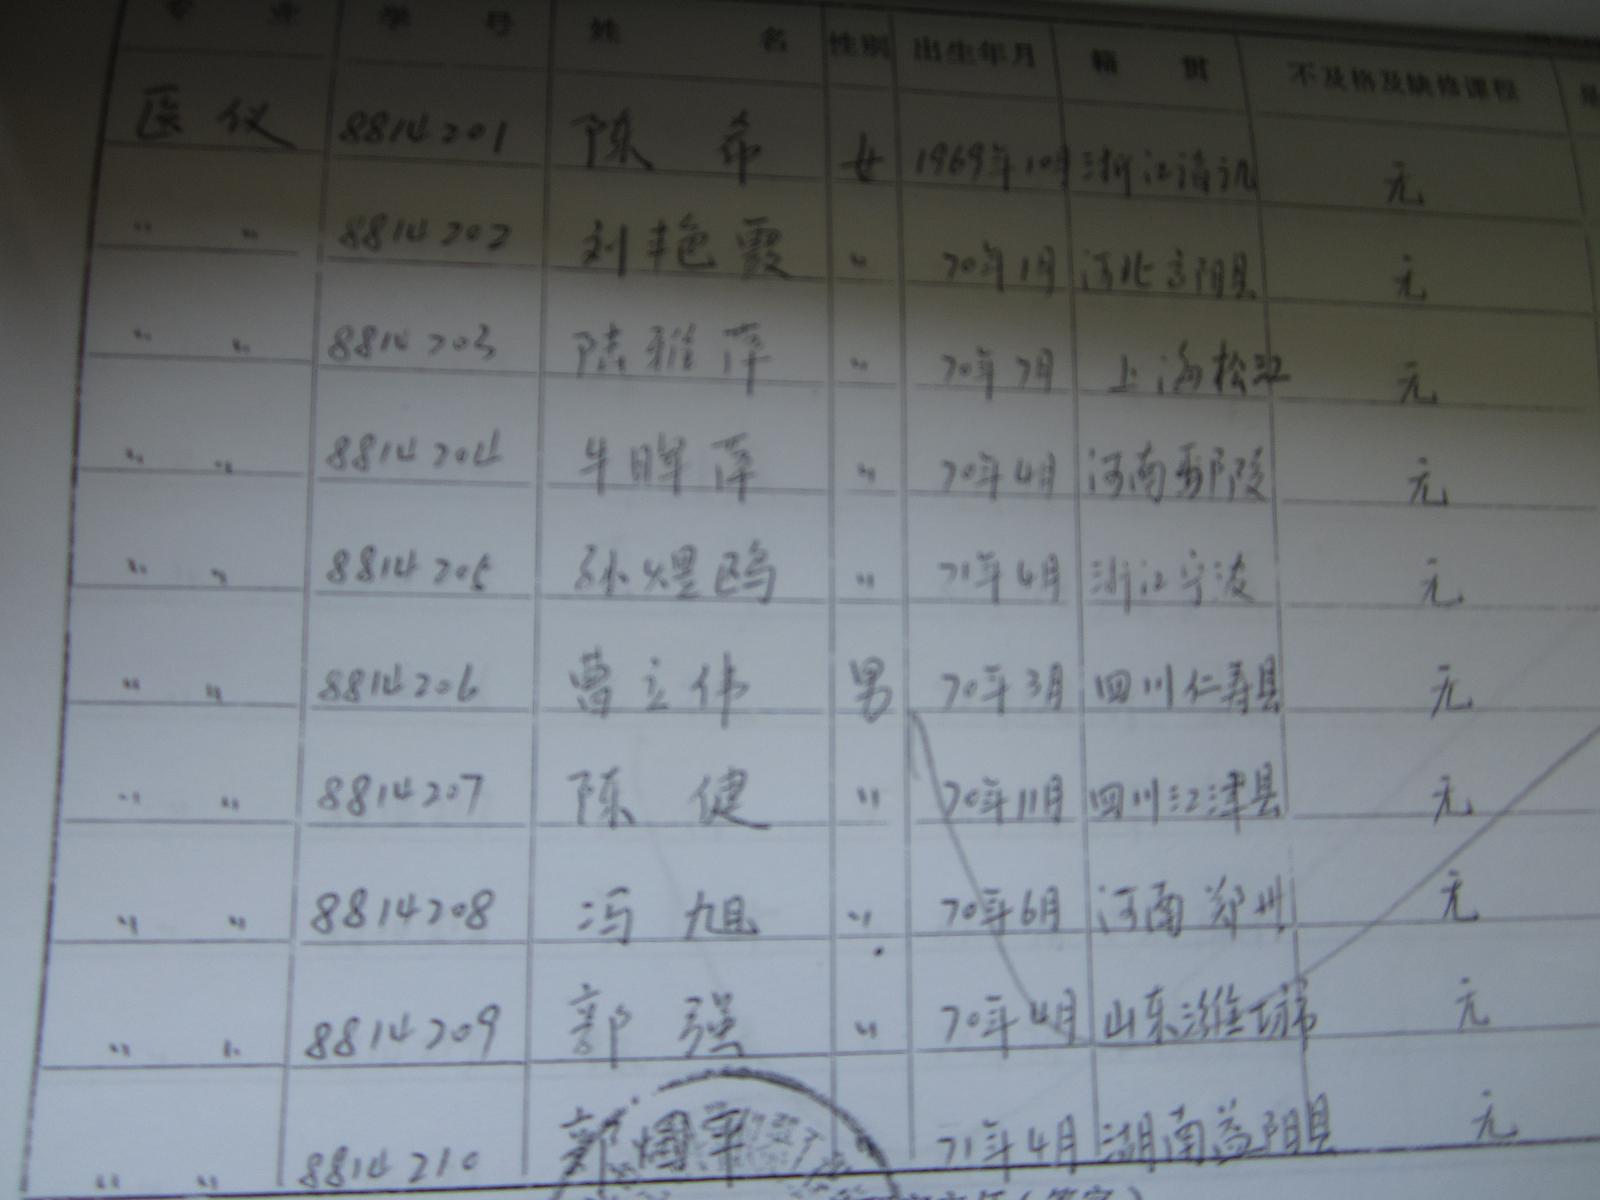 专 业 学 号 姓 名 性别 出生年月 籍 贯 不及格及缺修课程
医 仪 8814201 陈 希 女 1969年10月 浙江诸讥 无
" " 8814202 刘艳霞 " 70年1月 河北高阳县 无
" " 8814203 陆雅萍 " 70年7月 上海松江 无
" " 8814204 牛晖萍 " 70年4月 河南鄢陵 无
" " 8814205 孙煜鸥 " 71年4月 浙江宁波 无
" " 8814206 曹立伟 男 70年3月 四川仁寿县 无
" " 8814207 陈 健 " 70年11月 四川江津县 无
" " 8814208 冯 旭 " 70年6月 河南郑州 无
" " 8814209 郭 强 " 70年4月 山东潍坊市 无
" " 8814210 军 71年4月 湖南益阳县 无